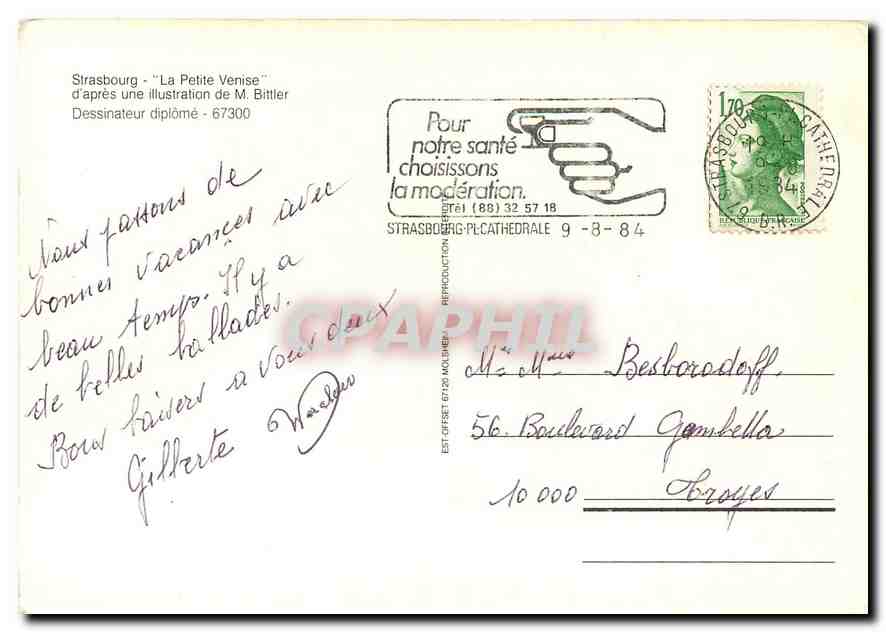 Strasbourg - "La Petite Venise"
d'après une illustration de M. Bittler
Dessinateur diplômé - 67300
Pour
notre santé
choisissons
la modération.
Tél (88) 32 57 18
STRASBOURG-PL.CATHEDRALE 9 -8- 84
1,70
RÉPUBLIQUE FRANÇAISE
67 STRASBOURG PL. CATHEDRALE
19 H
9 -8
1984
B.R.
Nous passons de
bonnes vacances avec
beau temps. Il y a
de belles ballades.
Bons baisers a vous deux
Gilberte
EST-OFFSET 67120 MOLSHEIM REPRODUCTION INTERDITE
CPAPHIL
Mr Mme Besboradoff.
56. Boulevard Gambella
10 000 Troyes